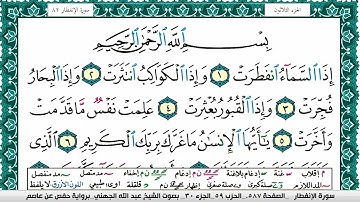 الجزء الثلاثون
سورة الإنفطار ٨٢
بِسْمِ ٱللَّهِ ٱلرَّحْمَٰنِ ٱلرَّحِيمِ
إِذَا ٱلسَّمَآءُ ٱنفَطَرَتْ ١ وَإِذَا ٱلْكَوَاكِبُ ٱنتَثَرَتْ ٢ وَإِذَا ٱلْبِحَارُ
فُجِّرَتْ ٣ وَإِذَا ٱلْقُبُورُ بُعْثِرَتْ ٤ عَلِمَتْ نَفْسٌ مَّا قَدَّمَتْ
وَأَخَّرَتْ ٥ يَٰٓأَيُّهَا ٱلْإِنسَٰنُ مَا غَرَّكَ بِرَبِّكَ ٱلْكَرِيمِ ٦ ٱلَّذِى
سورة الإنفطار - الصفحة ٥٨٧ - الحزب ٥٩ - الجزء ٣٠ - بصوت الشيخ عبد الله الجهني برواية حفص عن عاصم